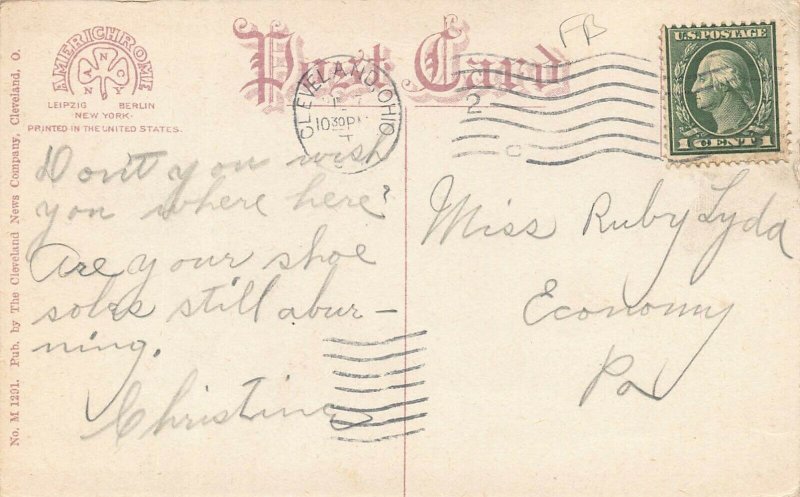 AMERICHROME
ANNY
LEIPZIG BERLIN
NEW YORK
PRINTED IN THE UNITED STATES.
Post Card
FB
CLEVELAND, OHIO
1030P
2
U.S. POSTAGE
1 CENT 1
No. M 1291. Pub. by The Cleveland News Company, Cleveland, O.
Don't you wish
you where here?
Are your shoe
soles still abur-
ning.
Christine
Miss Ruby Lyda
Economy
Pa